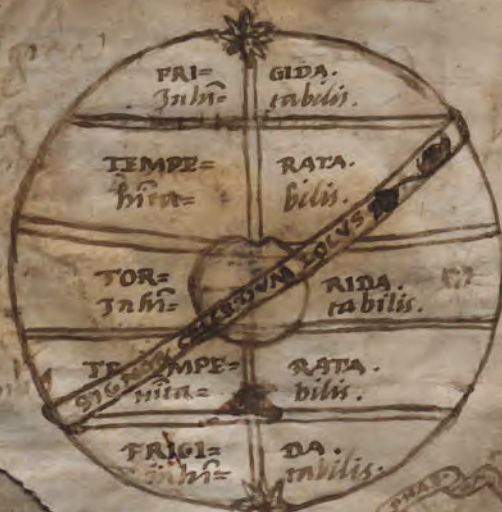 FRI= GIDA.
Inhī= tabilis.
TEMPE= RATA.
hīta= bilis.
TOR= RIDA.
Inhī= tabilis.
TEMPE= RATA.
hīta= bilis.
FRIGI= DA.
Inhī= tabilis.
LOCVS